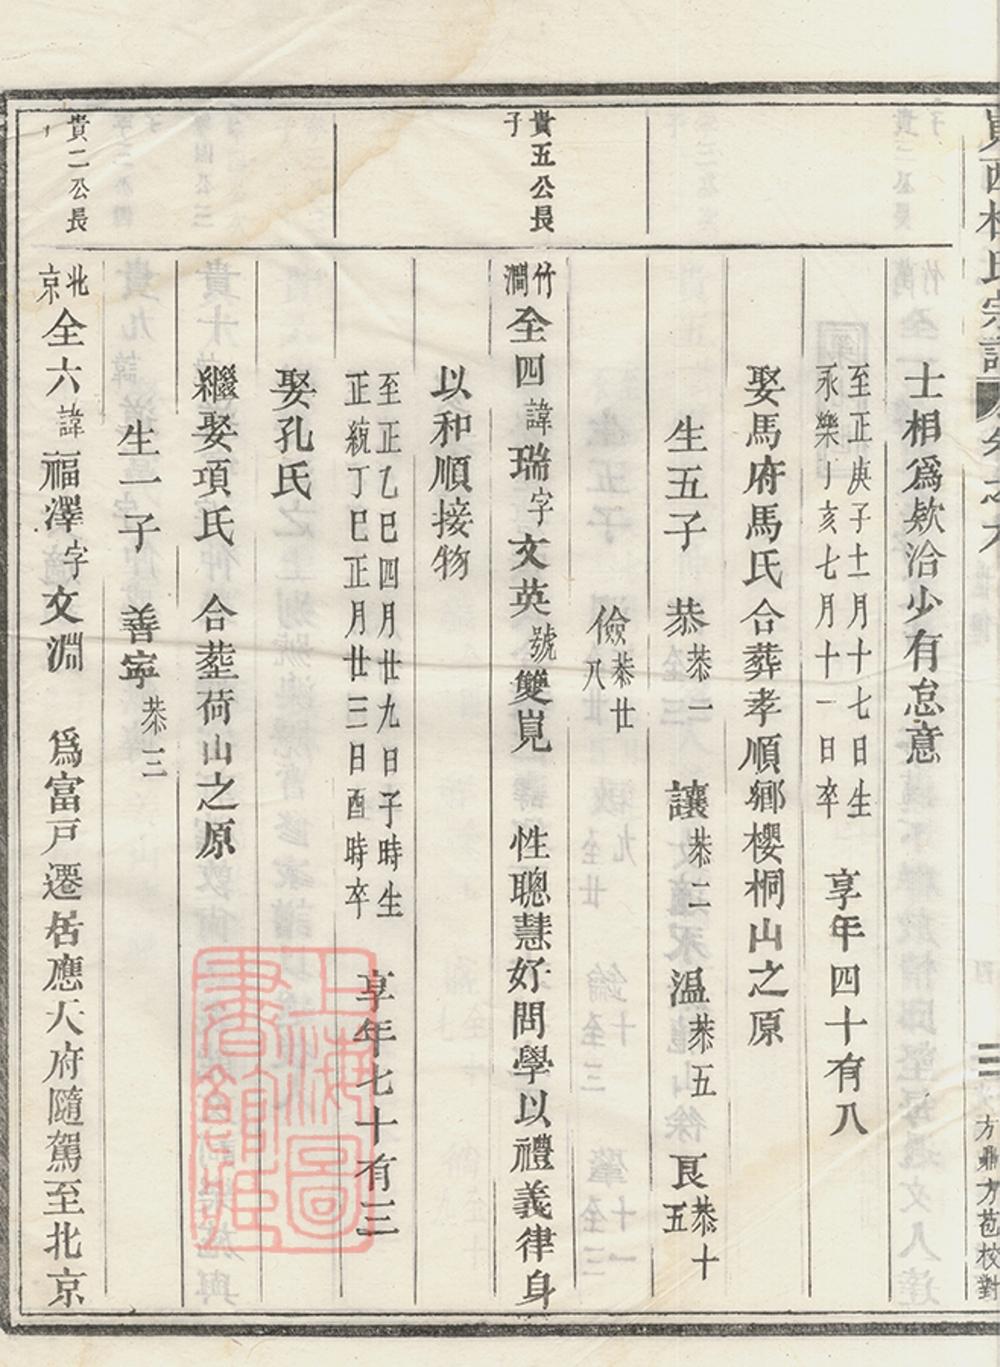 杜氏宗譜
卷之六
三
方鼎方苞校對
士相爲欵洽少有怠意
至正庚子十一月十七日生
永樂丁亥七月十一日卒
享年四十有八
娶馬府馬氏合葬孝順鄉櫻桐山之原
生五子 恭恭一 讓恭二 温恭五 良恭十五
儉恭廿八
貴五公長子
竹澗全四諱瑞字文英號雙峴 性聰慧好問學以禮義律身
以和順接物
至正乙巳四月廿九日子時生
正統丁巳正月廿三日酉時卒
享年七十有三
娶孔氏
繼娶項氏 合塟荷山之原
生一子 善寕恭三
貴二公長
北京全六諱福澤字文淵 爲富戸遷居應天府隨駕至北京
上海圖書館藏